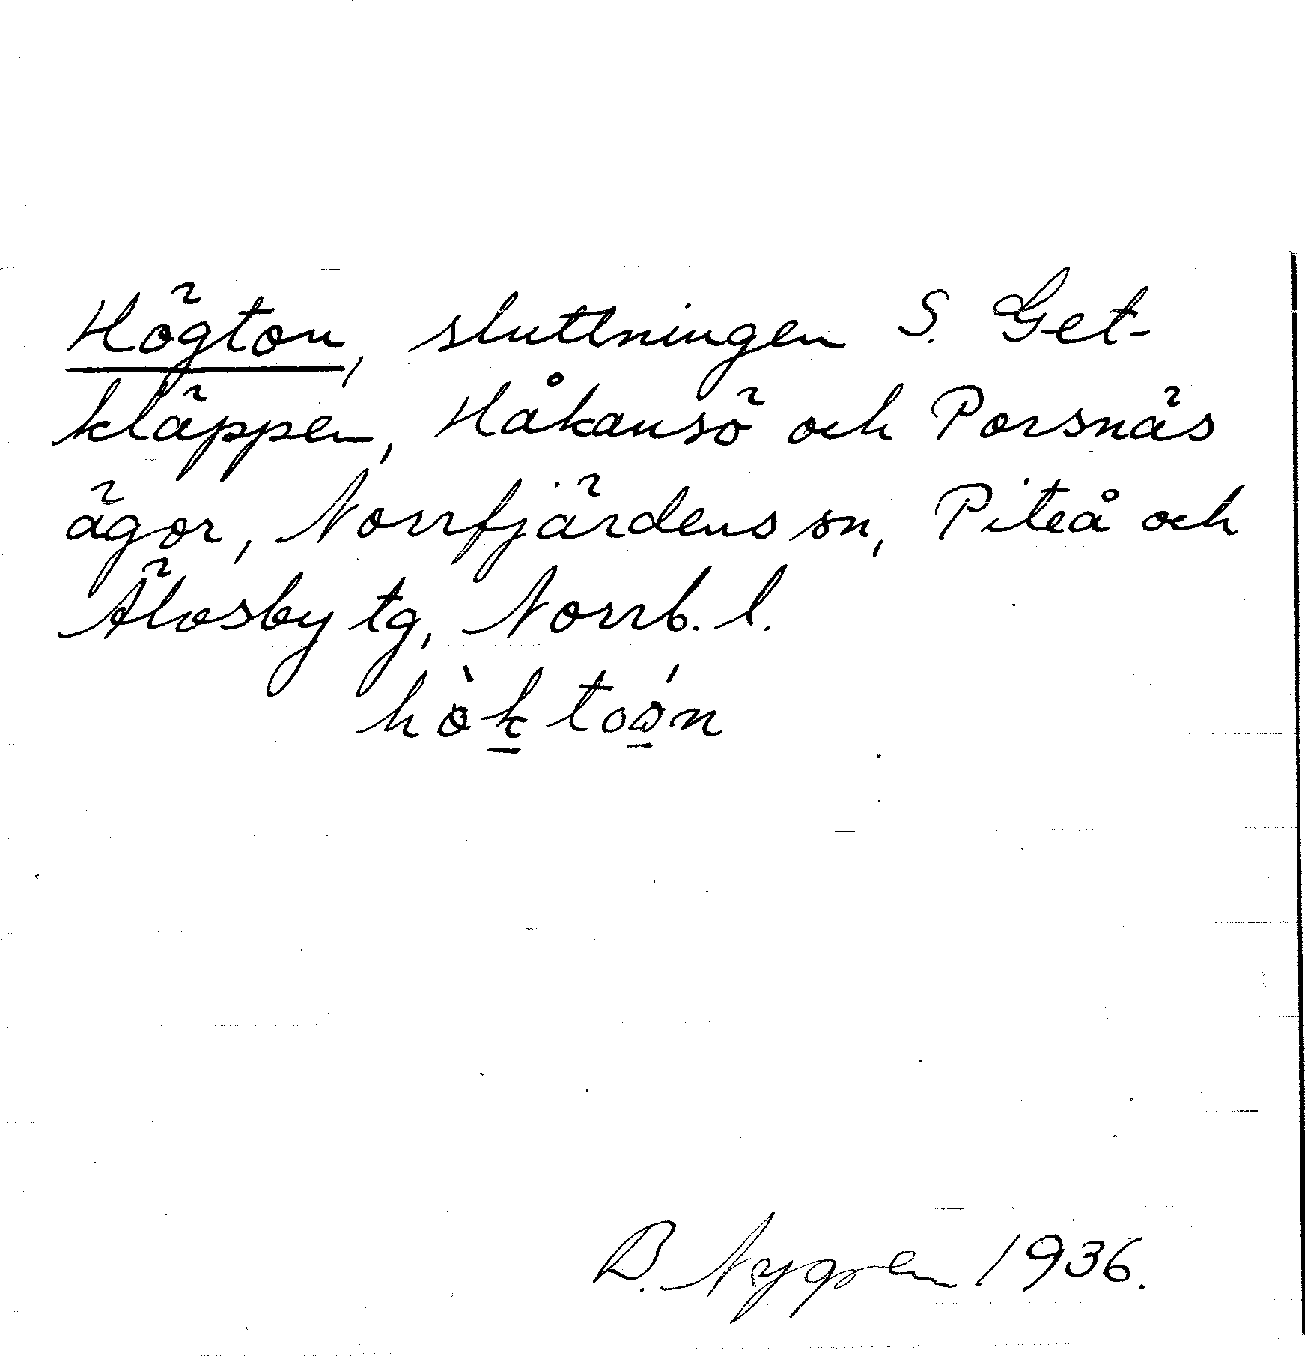 Högton, sluttningen S. Get-
kläppen, Håkansö och Porsnäs
ägor, Norrfjärdens sn, Piteå och
Älvsby tg, Norrb. l.
hö̀k toǿn
B. Nygren 1936.